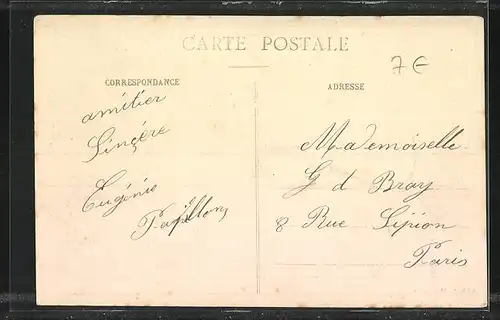 CARTE POSTALE
7€
CORRESPONDANCE
amitier
Sinçère
Eugénie
Papillon
ADRESSE
Mademoiselle
G d Bray
8 Rue Sipion
Paris